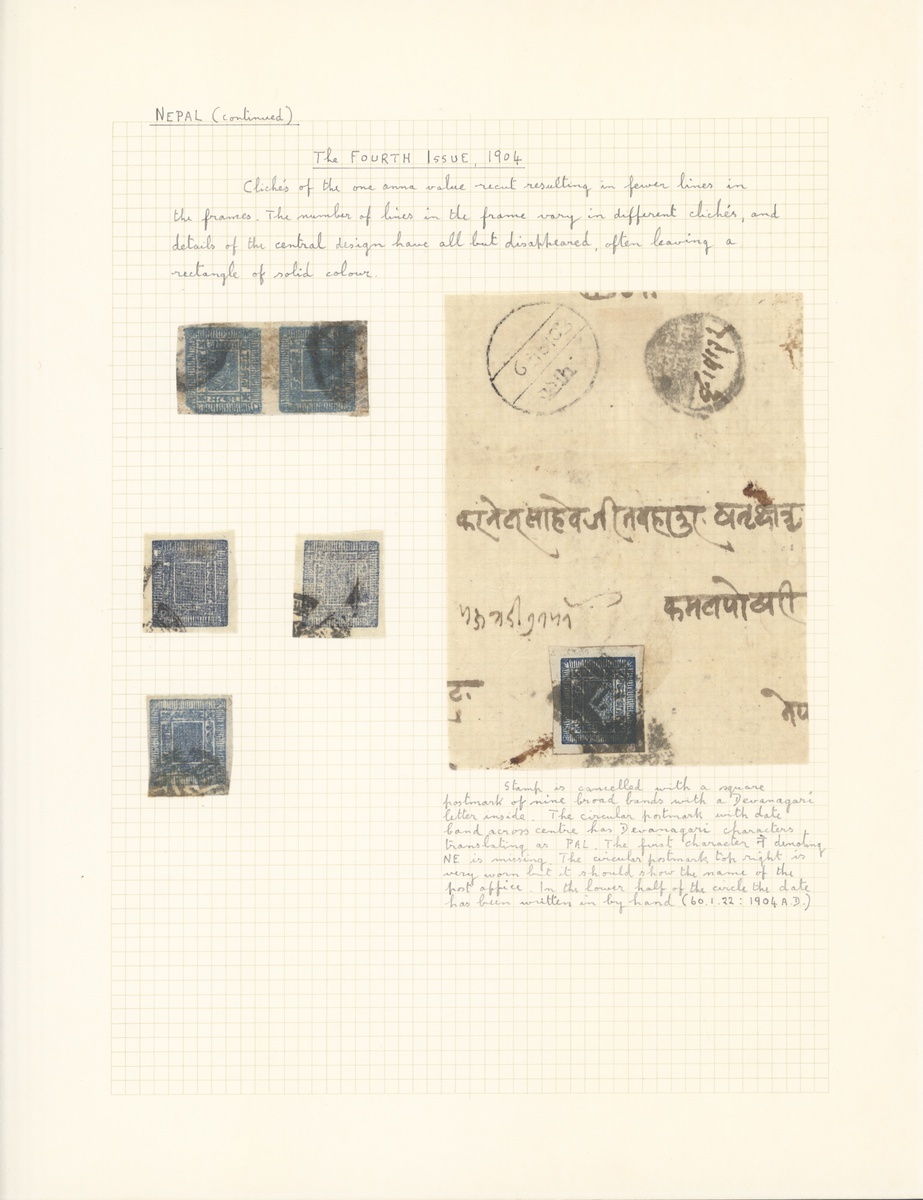 NEPAL (continued)
The FOURTH ISSUE, 1904
Clichés of the one anna value recut resulting in fewer lines in
the frames. The number of lines in the frame vary in different clichés, and
details of the central design have all but disappeared, often leaving a
rectangle of solid colour.
कमलपोखरी
Stamp is cancelled with a square
postmark of nine broad bands with a Devanagari
letter inside. The circular postmark with date
band across centre has Devanagari characters,
translating as PAL. The first character ने denoting
NE is missing. The circular postmark top right is
very worn but it should show the name of the
post office. In the lower half of the circle the date
has been written in by hand (60.1.22: 1904 A.D.)